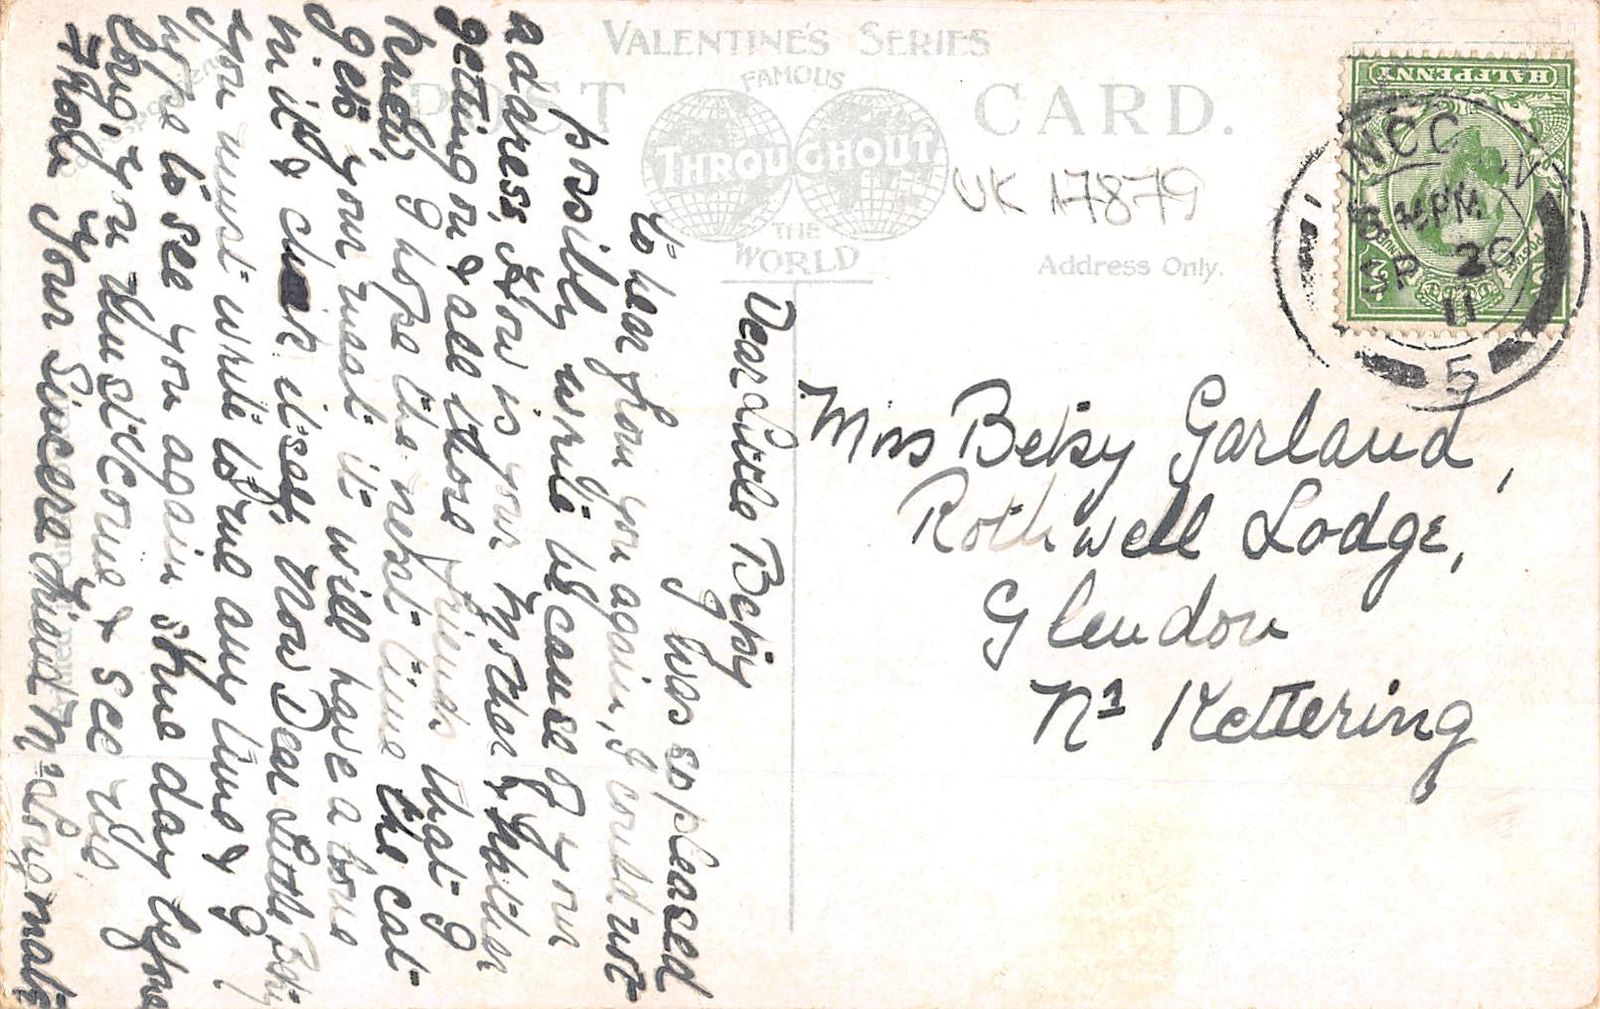 VALENTINE'S SERIES
POST CARD.
FAMOUS
THROUGHOUT
THE
WORLD
UK 17879
Address Only.
HALFPENNY
4 PM
SP 26
11
5
Miss Betsy Garland,
Rothwell Lodge,
Glendon
Nr Kettering
Dear Little Betsy
I was so pleased
to hear from you again, I could not
possibly write because of your
address, How is your Mother & Father
getting on & all those friends that I
knew, I hope the next time the cat
gets your meat it will have a bone
in it & choke itself, Now Dear Little Betsy
you must write to me any time & I
hope to see you again some day before
long, you must come & see me,
I think your Sincere Friend Mr Longmate